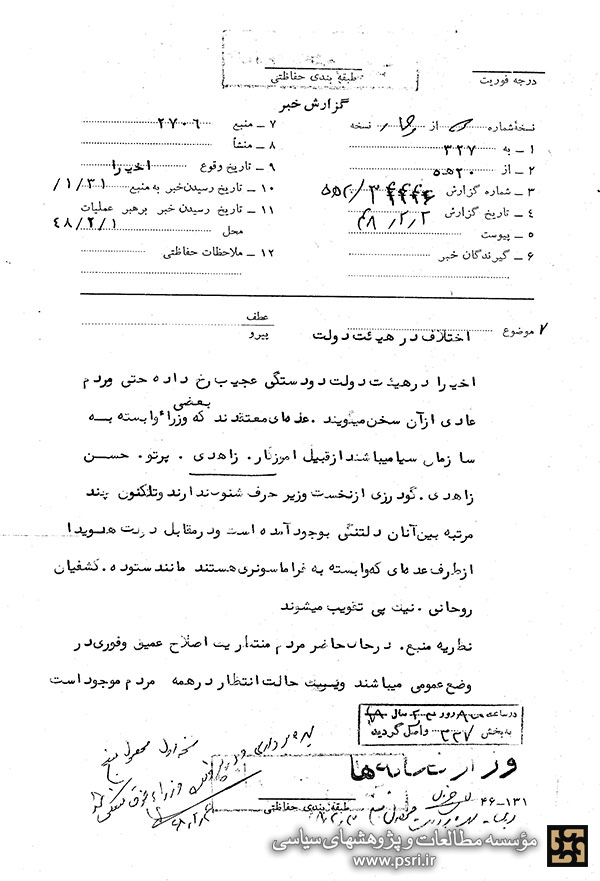 طبقه بندی حفاظتی
درجه فوریت
گزارش خبر
نسخه شماره از نسخه
۱ ـ به ۳۲۷
۲ ـ از ۲۰ه۵
۳ ـ شماره گزارش
۴ ـ تاریخ گزارش ۴۸/۲/۲
۵ ـ پیوست
۶ ـ گیرندگان خبر
۷ ـ منبع ۲۷۰۶
۸ ـ منشأ
۹ ـ تاریخ وقوع اخیرا
۱۰ ـ تاریخ رسیدن خبر به منبع ۱/۳۱/
۱۱ ـ تاریخ رسیدن خبر برهبر عملیات
محل ۴۸/۲/۱
۱۲ ـ ملاحظات حفاظتی
۷ موضوع اختلاف در هیئت دولت
عطف
پیرو
اخیرا در هیئت دولت دودستگی عجیب رخ داده حتی مردم
عادی از آن سخن میگویند . عده‌ای معتقدند که بعضی وزراء وابسته به
سازمان سیا میباشند از قبیل آموزگار . زاهدی . پرتو . حسن
زاهدی . گودرزی از نخست وزیر حرف شنوی ندارند و تاکنون چند
مرتبه بین آنان دلتنگی بوجود آمده است و در مقابل دولت هویدا
از طرف عده‌ای که وابسته به فراماسونری هستند مانند ستوده . کشفیان
روحانی . نیک پی تقویت میشوند
نظریه منبع . در حال حاضر مردم منتظر یک اصلاح عمیق و فوری در
وضع عمومی میباشند و یک حالت انتظار در همه مردم موجود است
در ساعت روز سال
به بخش ۳۳۷ واصل گردید
وزارتخانه‌ها
نسخه اول
۴۶-۱۳۱
طبقه بندی حفاظتی
مؤسسه مطالعات و پژوهشهای سیاسی
www.psri.ir